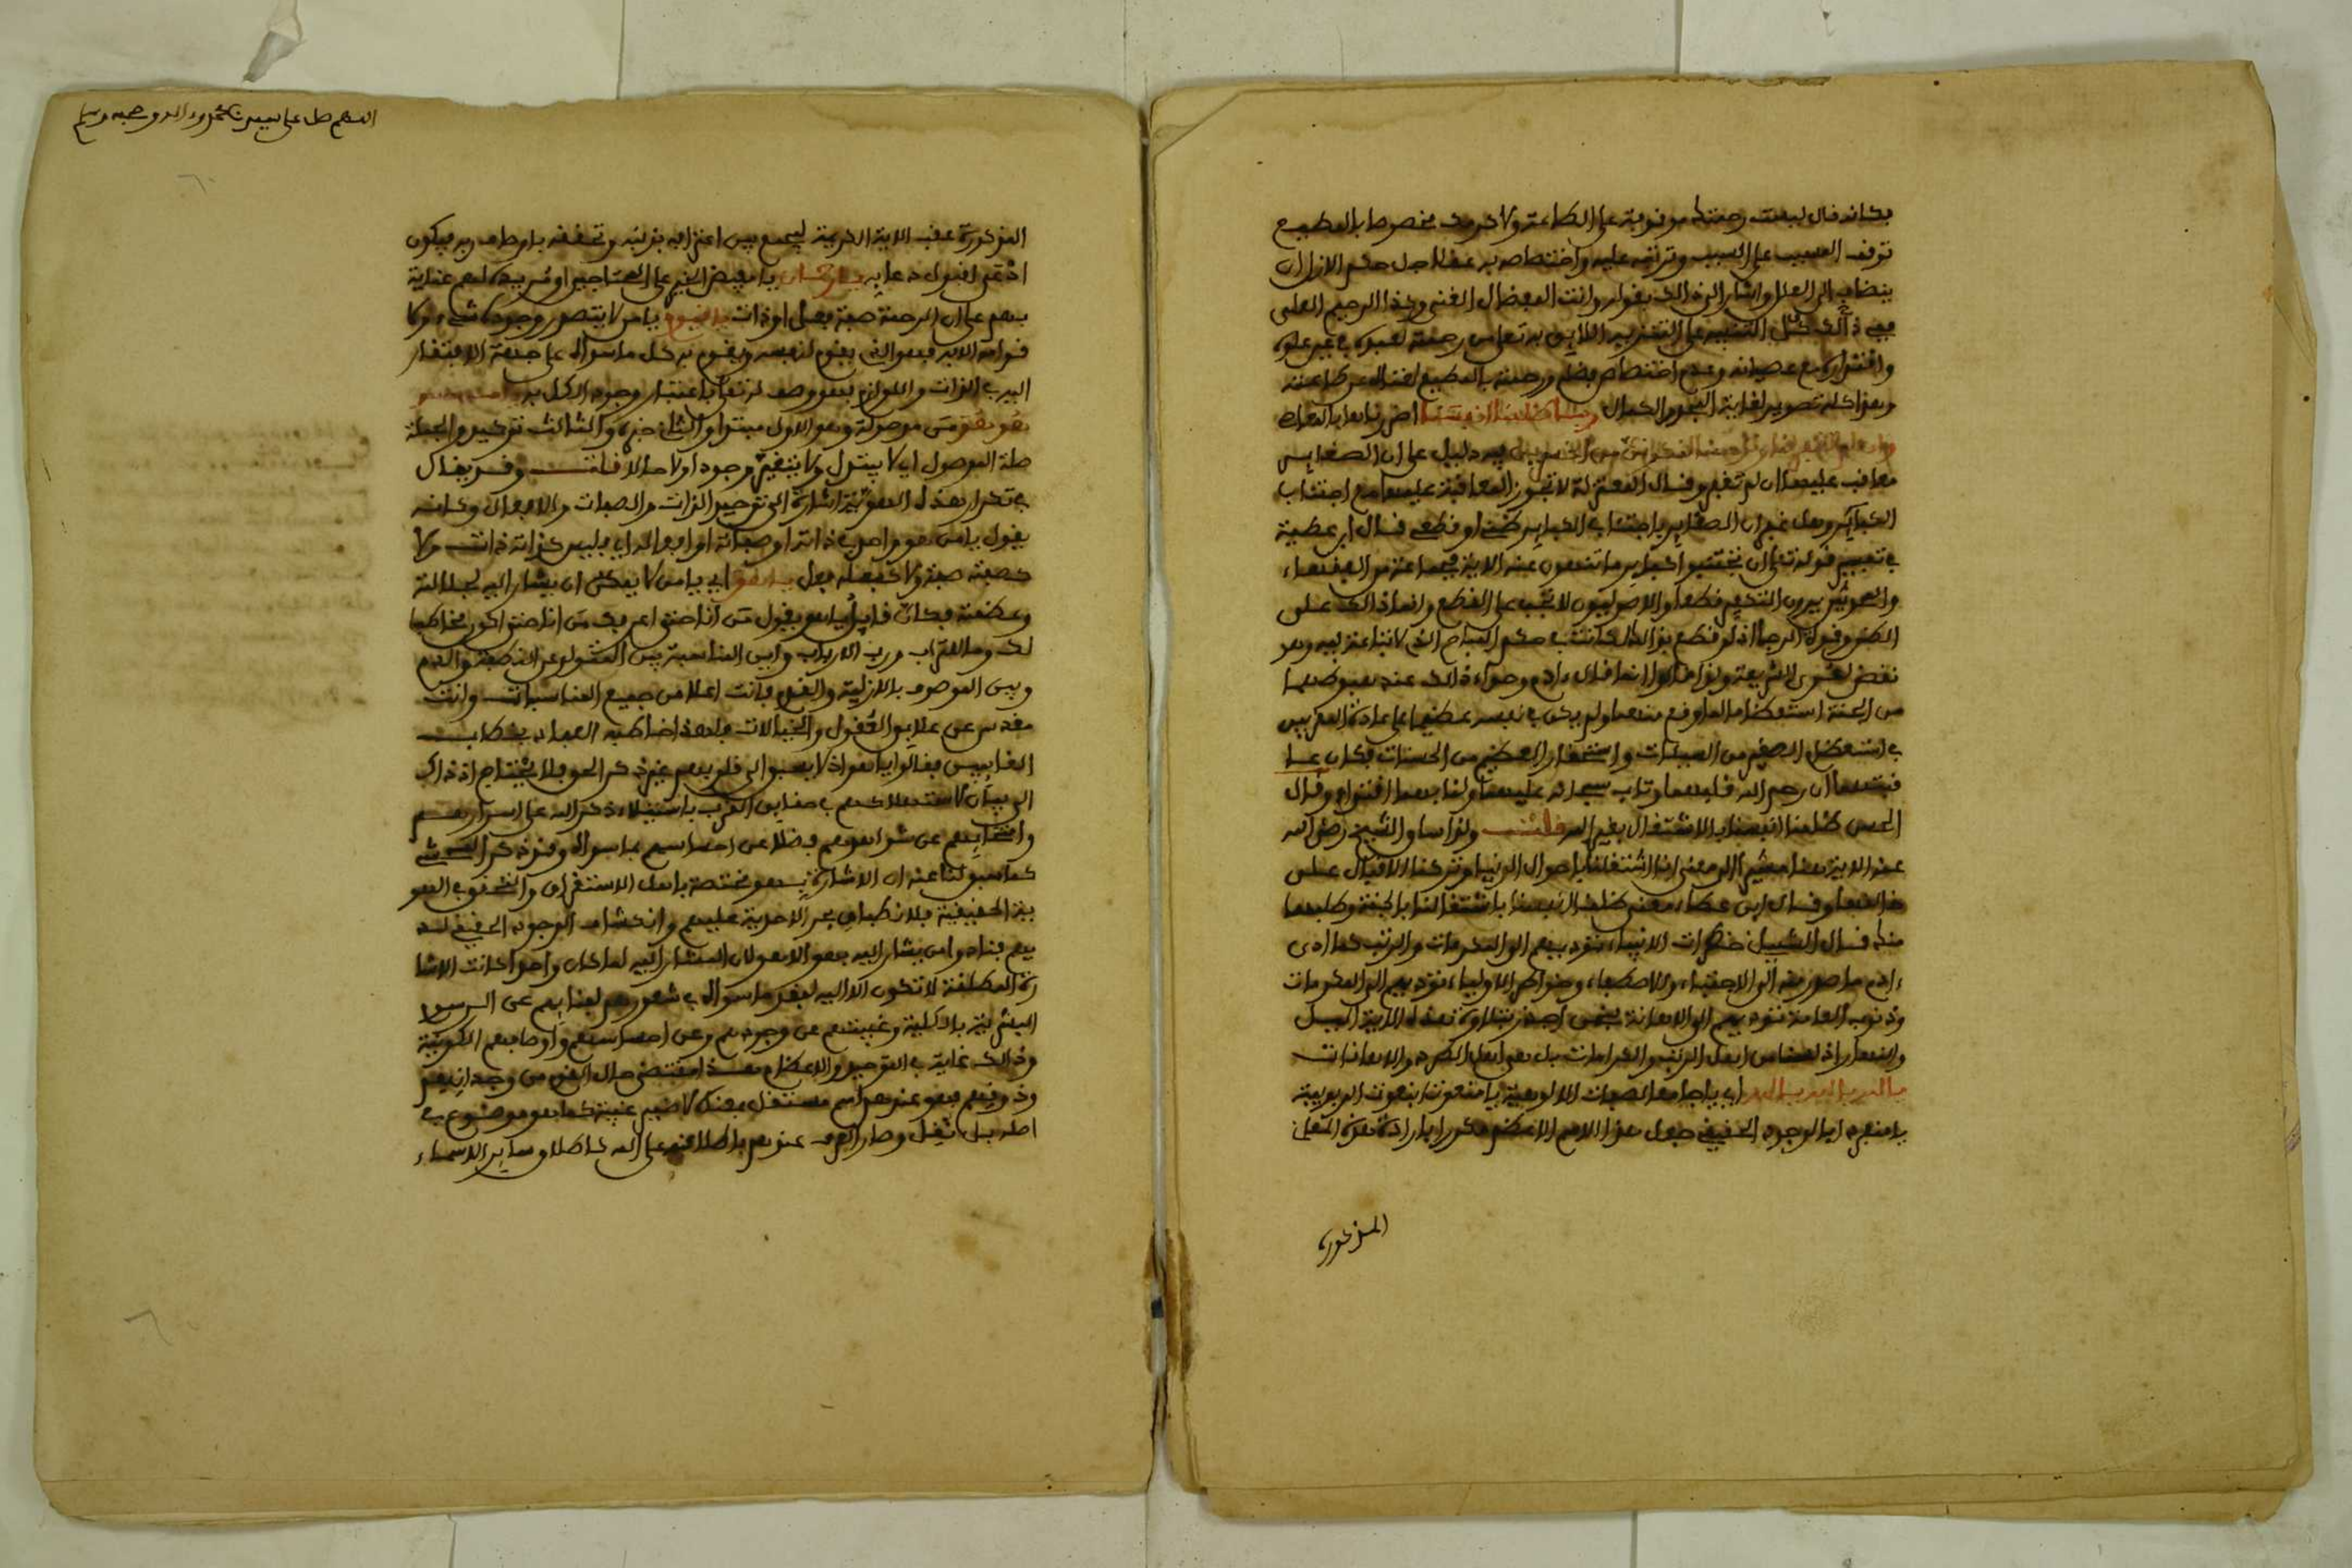 فكانه قال ليست رحمتك موقوفة على الطاعة ولا كرمك مخصوصا بالمطيع
توقف المسبب على السبب وترتبه عليه واختصاصه به عقلا جل حكم الازل ان
ينضاف الى العلل واشار الى ذالك بقوله وانت المفضال الغني وكذا الرحيم العلي
ففي ذالك كل التنبيه على التنزيه اللايق به تعلى من رحمته لعبده في غير علوه
واقتداره مع عصيانه وعدم اختصاص فضله ورحمته بالمطيع لغناه عن طاعته
وهذا كله تصوير لغاية الجود والكمال ربنا ظلمنا انفسنا اضررناها بالمعاصي
وان لم تغفر لنا وترحمنا لنكونن من الخاسرين فيه دليل على ان الصغاير
معاقب عليها ان لم تغفر وقال المعتزلة لا تجوز المعاقبة عليها مع اجتناب
الكباير وهل غفران الصغاير باجتناب الكباير ظني او قطعي قال ابن عطية
في تفسير قوله تعلى ان تجتنبوا كباير ما تنهون عنه الاية فجماعة من الفقهاء
والمحدثين يرون التكفير قطعا والاصوليون لا يجب على القطع وانما ذالك على
الظن وقوة الرجا اذ لو قطع بذالك لكانت في حكم المباح الذي لا تباعة فيه وهو
نقض لعرى الشريعة ولذا قالوا انما قال ءادم وحواء ذالك عند هبوطهما
من الجنة استعظاما لما وقع منهما ولم يكن في نفسه عظيما على عادة المقربين
في استعظام الصغير من السيئات واستحقار العظيم من الحسنات فكان عا
قبتهما ان رحم الله قلبهما وتاب سبحانه عليهما ولنا بهما اقتداء وقال
الحسن ظلمنا انفسنا بالاشتغال بغير الله قلت ولذا ساق الشيخ رضي الله
عنه الاية هنا مشيرا الى معنى انا اشتغلنا باحوال الدنيا وتركنا الاقبال على
خالقها وقال ابن عطاء معنى ظلمنا انفسنا باشتغالنا بالجنة وطلبها
منك قال الشبلي خطرات الانبياء تؤديهم الى المكرمات والرتب كما ادى
ءادم ما صدر منه الى الاجتباء والاصطفاء وخواطر الاولياء تؤديهم الى المكرمات
وذنوب العامة تؤديهم الى الاهانة
يا الله يا الله يا الله اي يا جامعا لصفات الالوهية يا منعوتا بنعوت الربوبية
يا منفردا بالوجود الحقيقي جعل هذا الاسم الاعظم مكررا باراءة هذه الجمل
المذكورة
اللهم صل على سيدنا محمد وءاله وصحبه وسلم
المذكورة عقب الاية الكريمة ليجمع بين اعترافه بذنبه وتحققه باوصاف ربه فيكون
ادعى لقبول دعايه يا رحمان يا مفيض الخير على المحتاجين او مريده لهم عناية
بهم على ان الرحمة صفة فعل او ذات يا قيوم يا من لا يتصور وجود شيء ولا
قوامه الا به فهو الذي يقوم لنفسه ويقوم به كل ما سواه على جهة الافتقار
اليه في الذات واللوازم فهو وصف له تعلى باعتبار وجود الكل به يا من هو
هو هو من موصولة وهو الاول مبتدا والثاني خبره والثالث توكيد والجملة
صلة الموصول اي لا يتبدل ولا يتغير موجود اولا حالا قلت وقد يقال
في تكرار هذه الهوية اشارة الى توحيد الذات والصفات والافعال وكانه
يقول يا من هو واحد في ذاته او صفاته او افعاله اي فليس كذاته ذات ولا
كصفته صفة ولا كفعله فعل يا هو اي يا من لا يمكن ان يشار اليه لجلالته
وعظمته فكان قايل يا هو يقول من انا حتى اعرفك من انا حتى اكون مخاطبا
لك وما للتراب ورب الارباب واين المناسبة بين المتولد عن النطفة والدم
وبين الموصوف بالازلية والقدم فانت اعلا من جميع المناسبات وانت
مقدس عن علايق العقول والخيالات فلهذا خاطبه العباد بخطاب
الغايبين فقالوا يا هو اذ لا يسبق الى قلوبهم غير ذكر الحق فلا يحتاج اذ ذاك
الى بيان لاستهلاكهم في حقايق القرب باستيلاء ذكر الله على اسرارهم
وانمحايهم عن شواهدهم فضلا عن احساسهم بما سواه وقد ذكر الشيخ
كما سبق لنا عنه ان الاشارة بهو مختصة باهل الاستغراق والتحقق في الهو
ية الحقيقية فلانطباق بحر الاحدية عليهم وانكشاف الوجود الحقيقي لد
يهم فقدوا من يشار اليه بهو الا هو لان المشار اليه لما كان واحدا كانت الاشا
رة المطلقة لا تكون الا اليه لفقد ما سواه في شعورهم لفنايهم عن الرسوم
البشرية بالكلية وغيبتهم عن وجودهم وعن احساسهم واوصافهم الكونية
وذالك غاية في التوحيد والاعظام هذا مقتضى حال القوم من وجدانيتهم
وذوقهم فهو عندهم اسم مستقل بهذا لا ضمير غيبة كما هو موضوع في
اصله بل نقل وصار العرف عندهم باطلاقه على الله كاطلاق ساير الاسماء